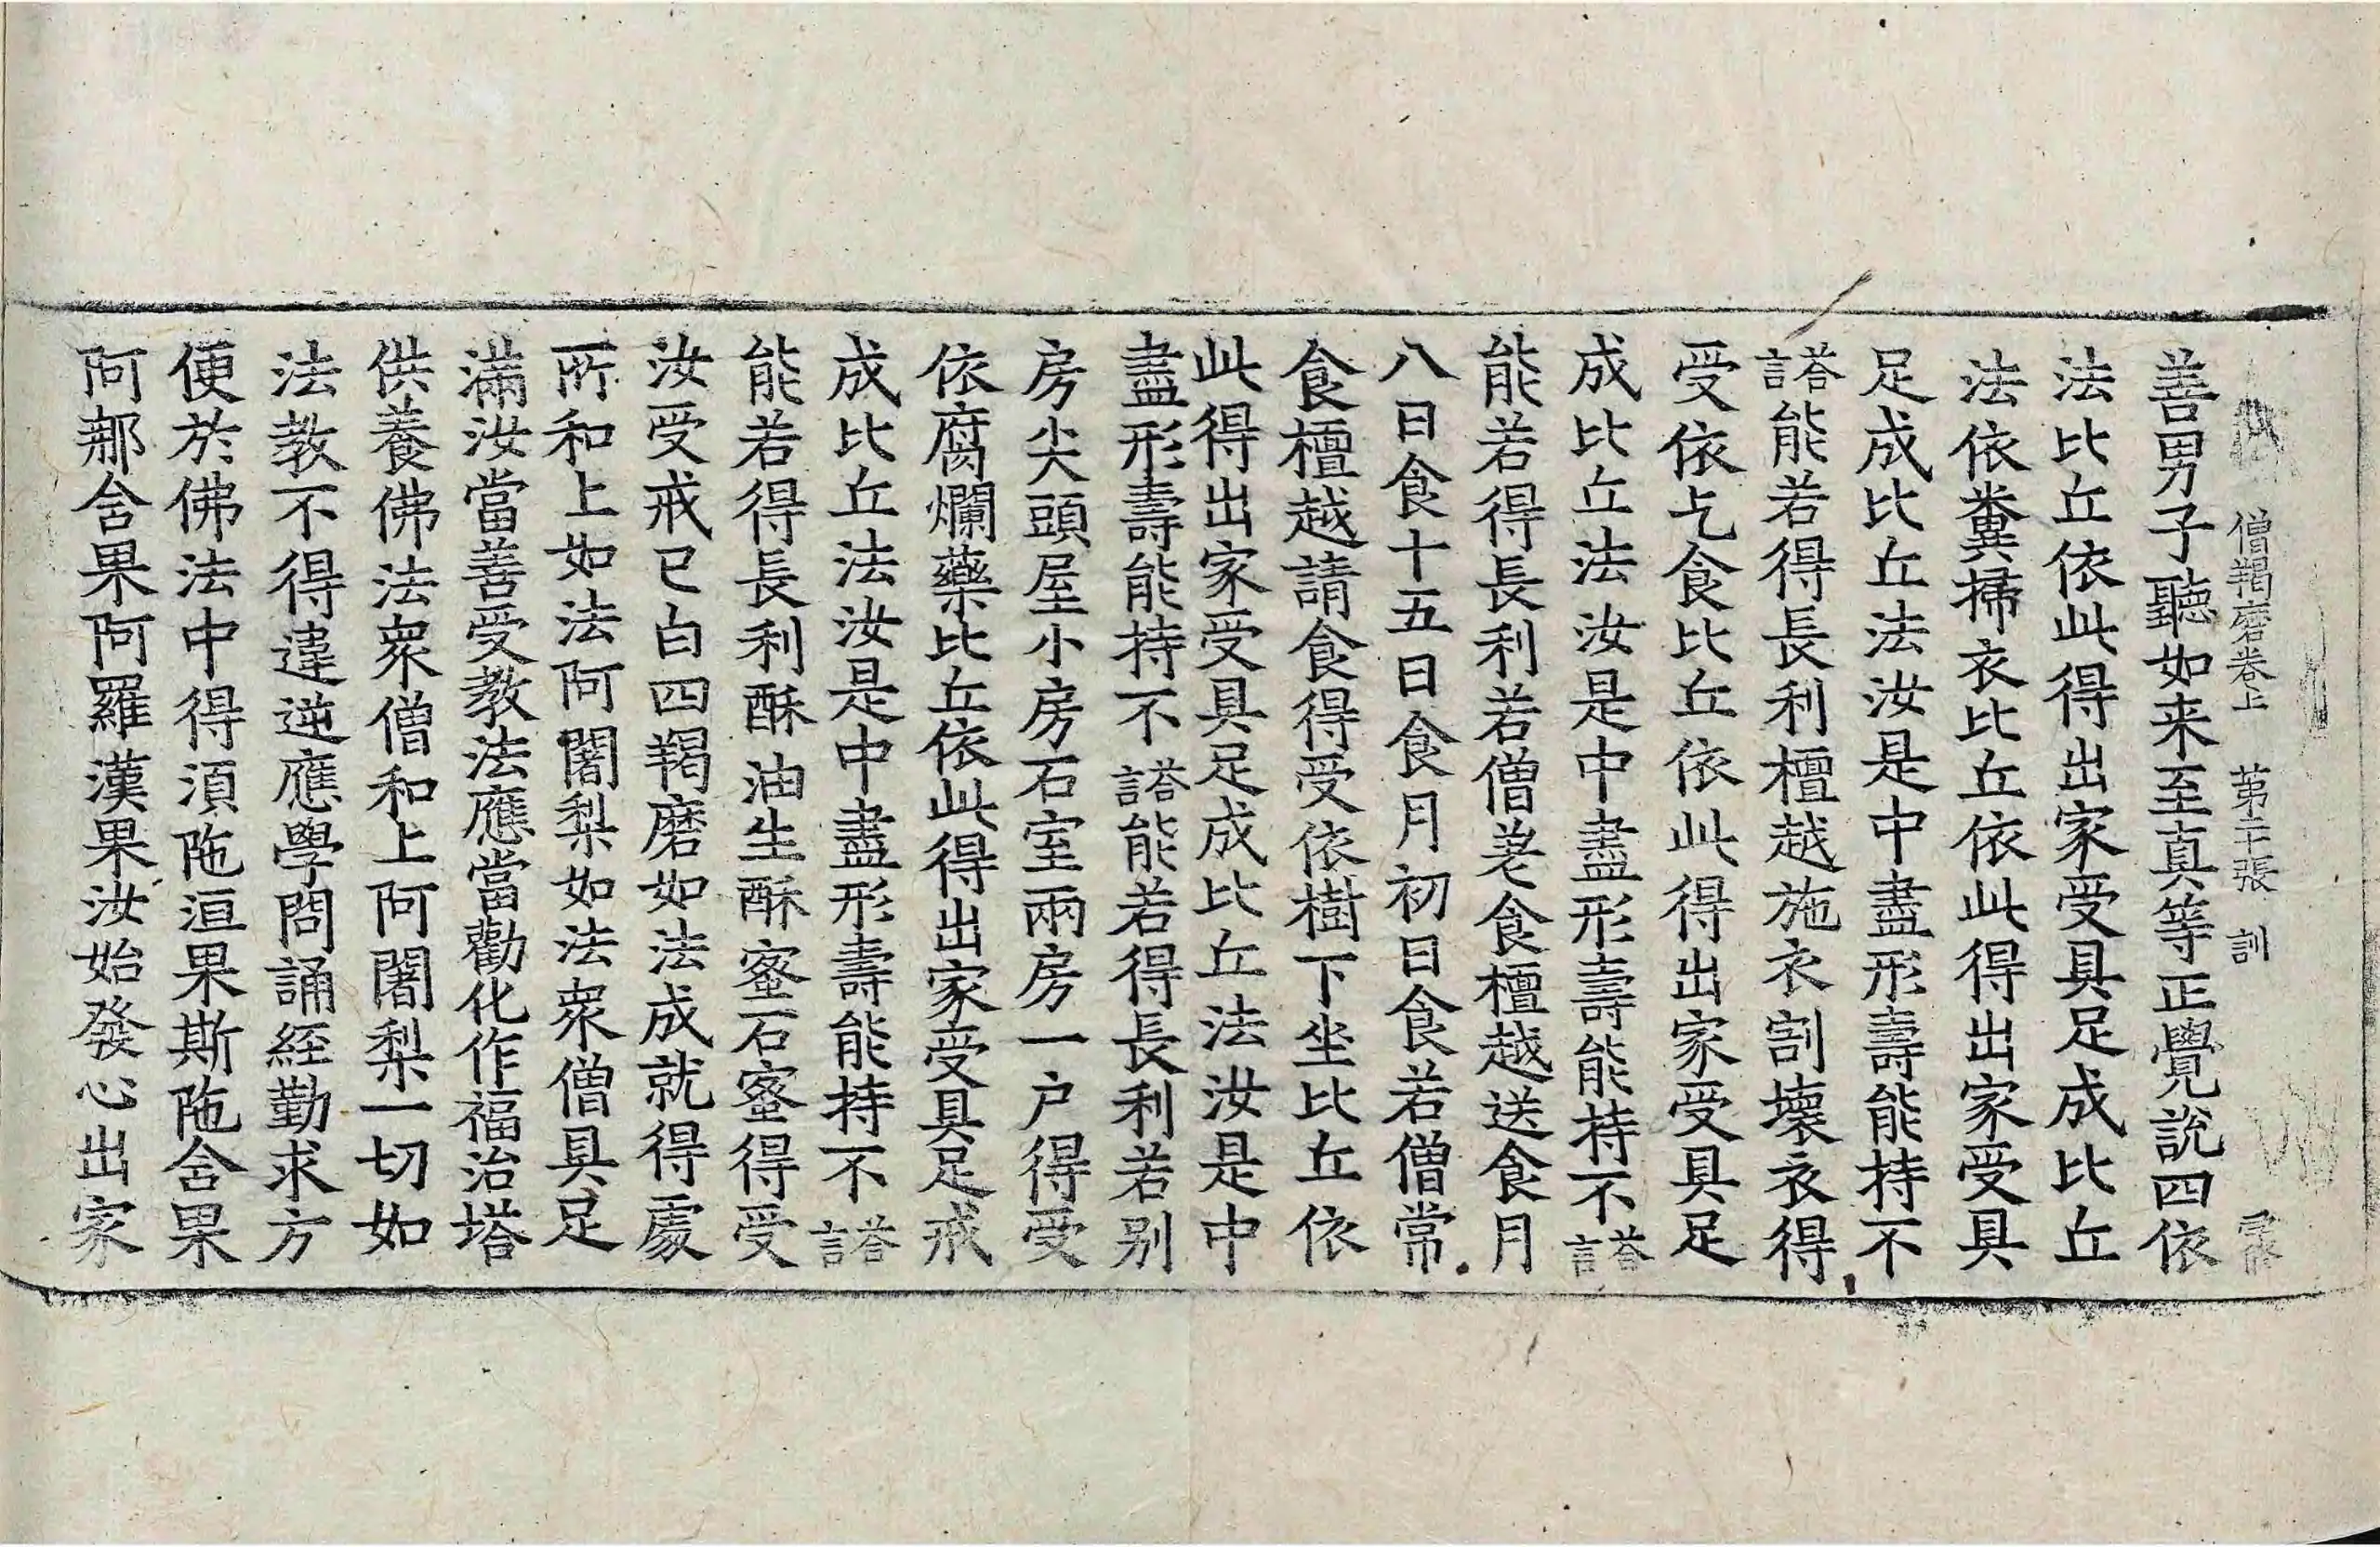 僧羯磨卷上 第二十張 訓
善男子聽如来至真等正覺說四依
法比丘依此得出家受具足成比丘
法依糞掃衣比丘依此得出家受具
足成比丘法汝是中盡形壽能持不
荅言能若得長利檀越施衣割壞衣得
受依乞食比丘依此得出家受具足
成比丘法汝是中盡形壽能持不荅言
能若得長利若僧差食檀越送食月
八日食十五日食月初日食若僧常
食檀越請食得受依樹下坐比丘依
此得出家受具足成比丘法汝是中
盡形壽能持不荅言能若得長利若别
房尖頭屋小房石室兩房一户得受
依腐爛藥比丘依此得出家受具足戒
成比丘法汝是中盡形壽能持不荅言
能若得長利酥油生酥蜜石蜜得受
汝受戒已白四羯磨如法成就得處
所和上如法阿闍梨如法衆僧具足
滿汝當善受教法應當勸化作福治塔
供養佛法衆僧和上阿闍梨一切如
法教不得違逆應學問誦経勤求方
便於佛法中得湏陁洹果斯陁含果
阿那含果阿羅漢果汝始發心出家